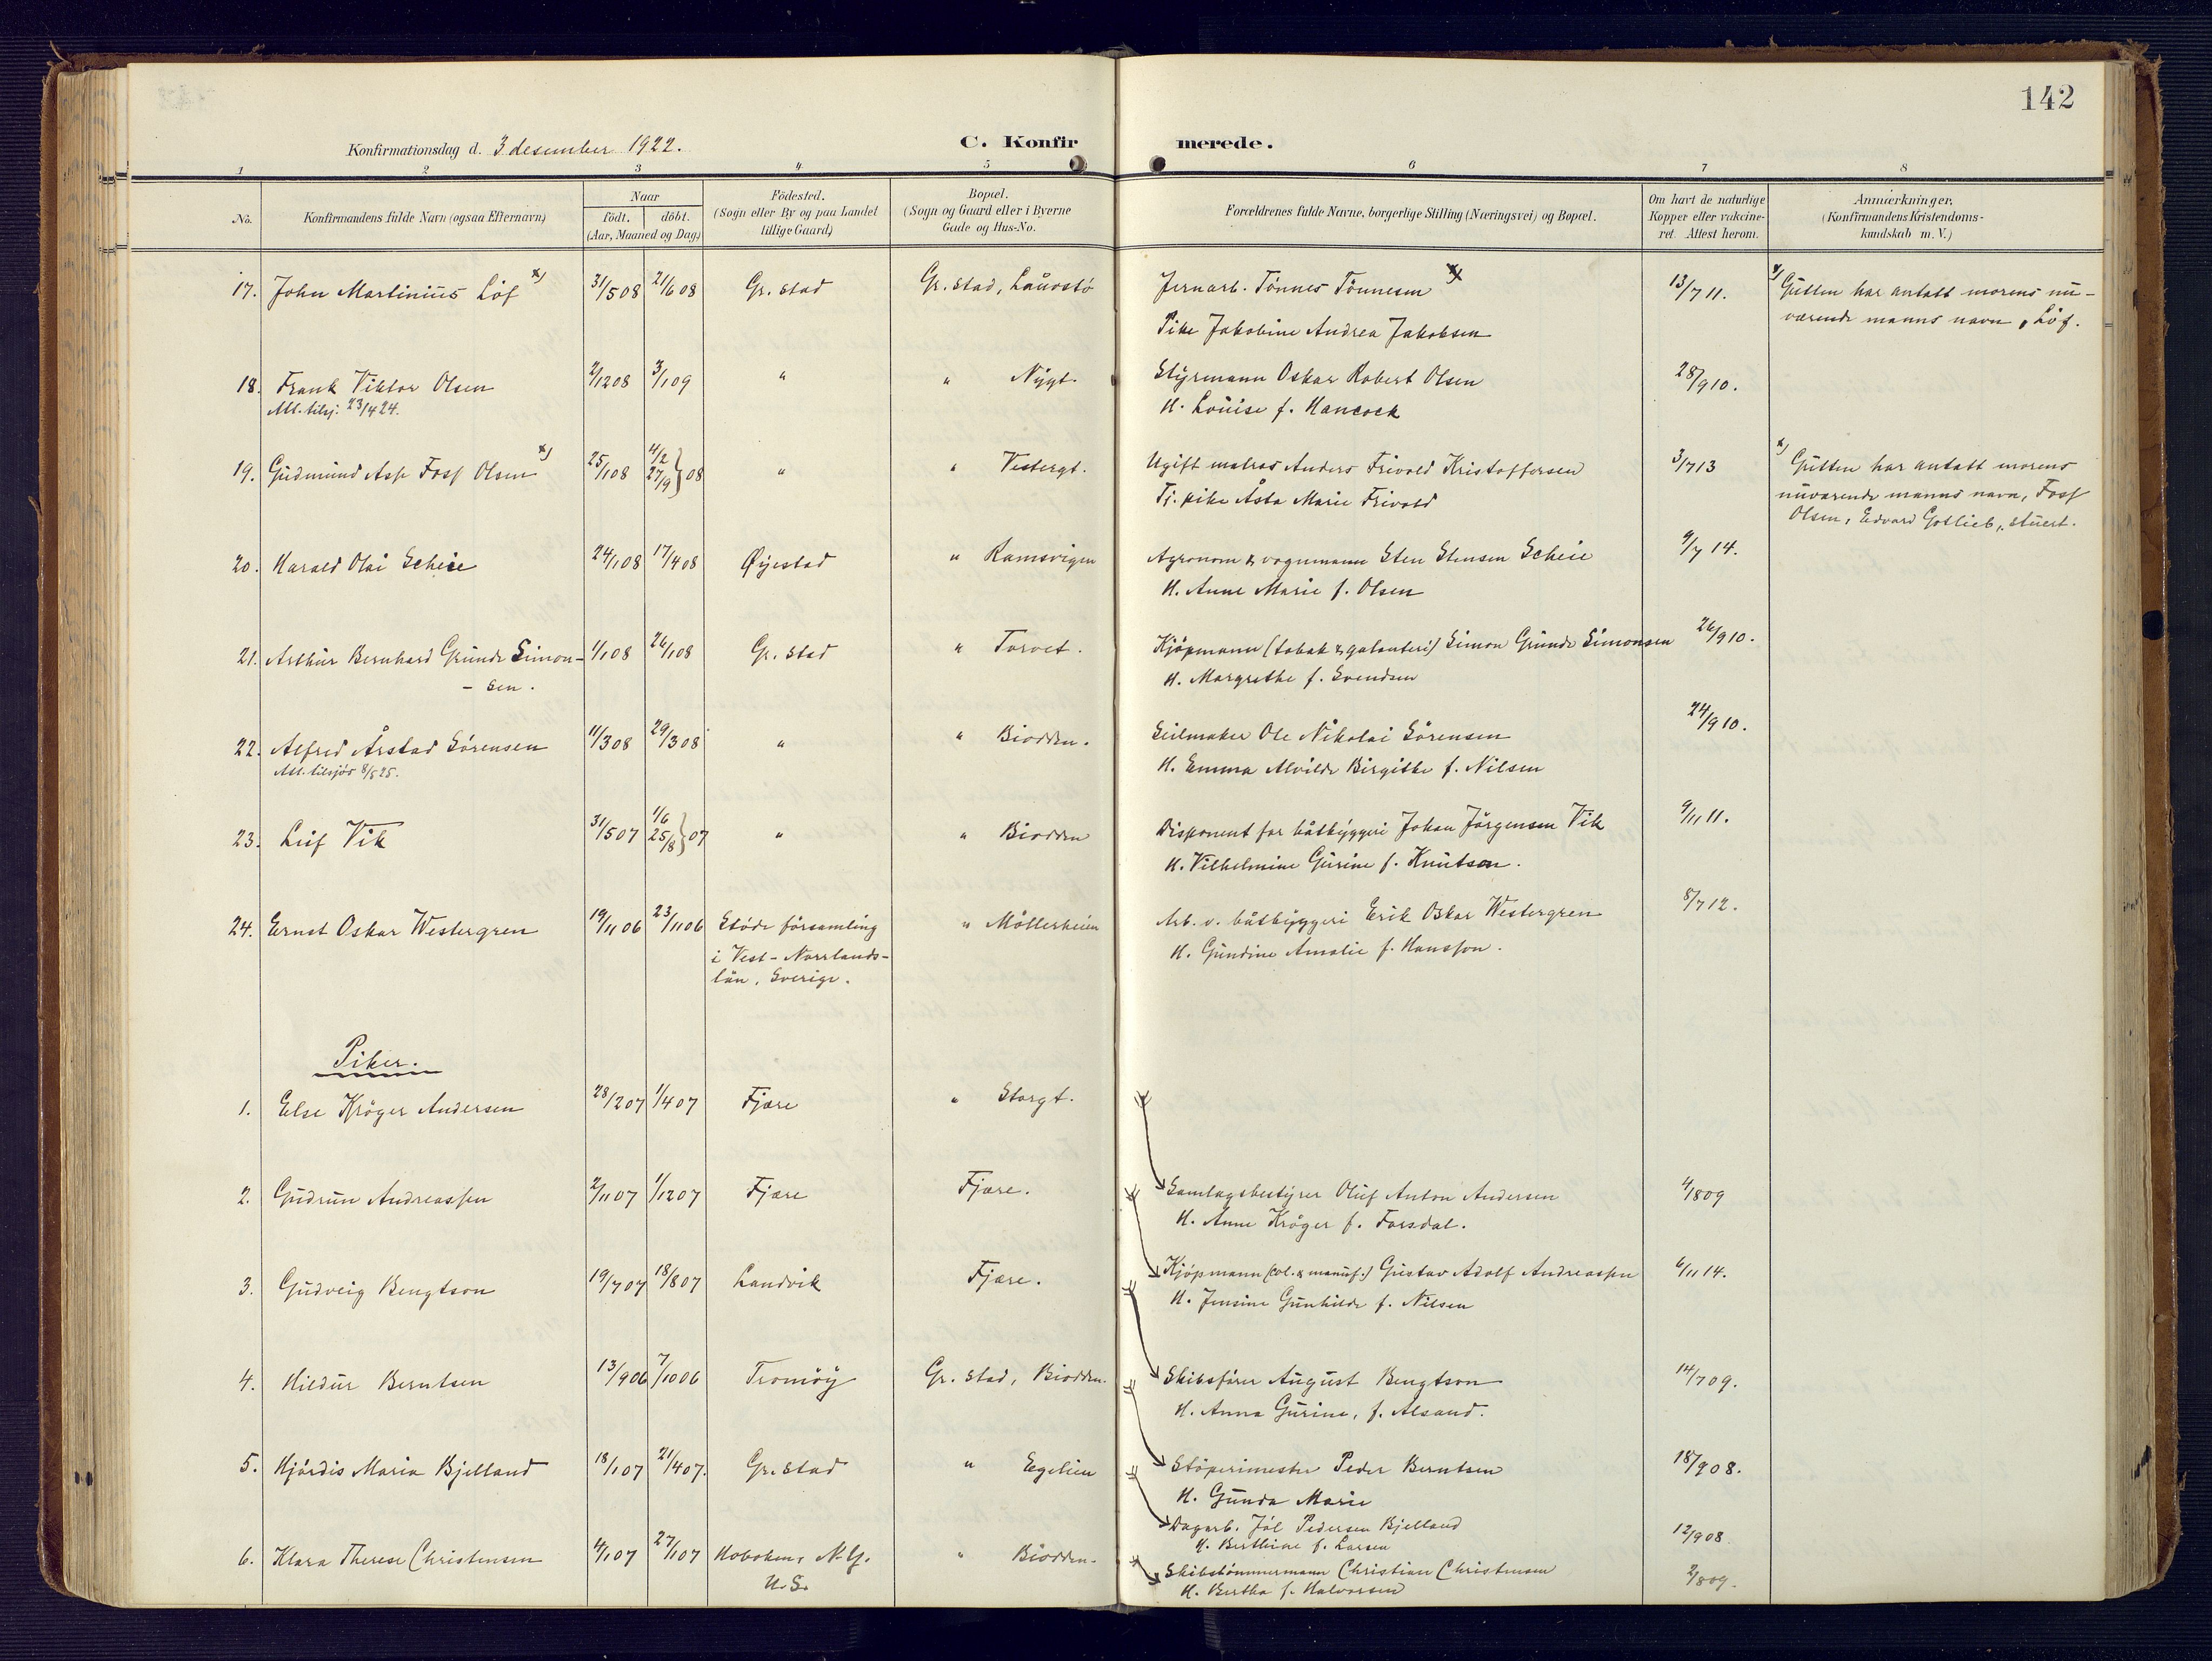 142
Konfirmationsdag d. 3 desember 1922.
C. Konfirmerede.
1 2 3 4 5 6 7 8
No.
Konfirmandens fulde Navn (ogsaa Efternavn)
Naar
födt. döbt.
(Aar, Maaned og Dag.)
Födested.
(Sogn eller By og paa Landet
tillige Gaard)
Bopæl.
(Sogn og Gaard eller i Byerne
Gade og Hus-No.
Forældrenes fulde Navne, borgerlige Stilling (Næringsvei) og Bopæl.
Om havt de naturlige
Kopper eller vakcine-
ret. Attest herom.
Anmærkninger,
(Konfirmandens Kristendoms-
kundskab m. V.)
17. John Martinius Löf x) 31/5 08 21/6 08 Gr. stad Gr. stad, Lauvstö Jernarb. Tönnes Tönnesen x) 13/7 11. x) Gutten har antatt morens nu-
Pike Jakobine Andrea Jakobsen værende manns navn, Löf.
18. Frank Viktor Olsen 2/12 08 3/1 09 " " Nygt. Styrmann Oskar Robert Olsen 28/9 10.
Att. tilsj. 23/4 24. H. Louise f. Hancock
19. Gudmund Asp Foss Olsen x) 25/1 08 4/2 27/9 } 08 " " Vestergt. Ugift matros Anders Frivold Kristoffersen 3/7 13 x) Gutten har antatt morens
Tj. pike Åsta Marie Frivold nuværende manns navn, Foss
Olsen, Edvard Gotlieb, stuert.
20. Harald Olai Scheie 24/1 08 17/4 08 Øyestad " Ramsvigen Agronom & vognmann Sten Stensen Scheie 9/7 14.
H. Anne Marie f. Olsen
21. Arthur Bernhard Grunde Simon- 1/1 08 26/1 08 Gr. stad " Torvet. Kjöpmann (tobak & galanteri) Simon Grunde Simonsen 26/9 10.
- sen. H. Margrethe f. Svendsen
22. Alfred Årstad Sörensen 11/3 08 29/3 08 " " Biodden. Seilmaker Ole Nikolai Sörensen 24/9 10.
Att. tilsjös 8/5 25. H. Emma Alvilde Birgitte f. Nilsen
23. Leif Vik 31/5 07 1/6 25/8 } 07 " " Biodden Disponent for båtbyggeri Johan Jörgensen Vik 9/11 11.
H. Vilhelmine Gurine f. Knutson.
24. Ernst Oskar Westergren 19/11 06 23/11 06 Stöde församling " Möllerheien Arb. v. båtbyggeri Erik Oskar Westergren 8/7 12.
i Vest-Norrlands- H. Gundine Amalie f. Hansson.
län, Sverige.
Piker.
1. Else Kröger Andersen 28/2 07 1/4 07 Fjære " Storgt.
2. Gudrun Andreassen 2/11 07 1/12 07 Fjære Fjære. Samlagsbestyrer Oluf Anton Andersen 4/8 09
H. Anne Kröger f. Forsdal.
3. Gudveig Bengtson 19/7 07 18/8 07 Landvik Fjære. Kjöpmann (col. & manuf.) Gustav Adolf Andreassen 6/11 14.
H. Jensine Gunhilde f. Nilsen
4. Hildur Berntsen 13/9 06 7/10 06 Tromöy Gr. stad, Biodden. Skibsförer August Bengtson 14/7 09.
H. Anna Gurine, f. Alsand.
5. Hjördis Maria Bjelland 18/1 07 21/4 07. Gr. stad " Egelien Stöperimester Peder Berntsen 18/9 08.
H. Gunda Marie
Dagarb. Jol Pedersen Bjelland 12/9 08.
H. Berthine f. Larsen
6. Klara Therese Christensen 4/1 07 27/1 07 Hoboken, N.Y. " Biodden. Skibstömmermann Christian Christensen 2/8 09.
U.S. H. Bertha f. Halvorsen